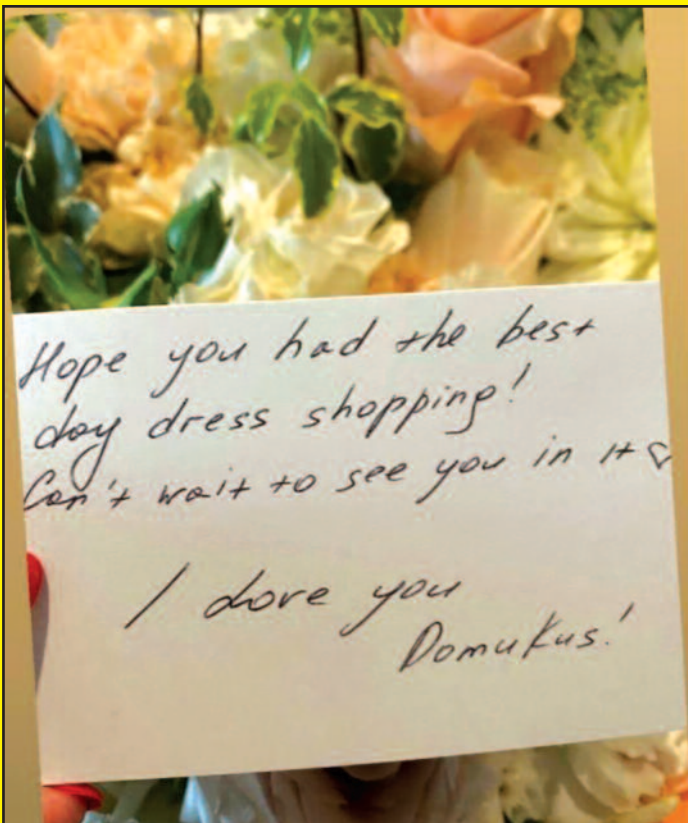 Hope you had the best
day dress shopping!
Can't wait to see you in it ♡
I love you
Domukus!